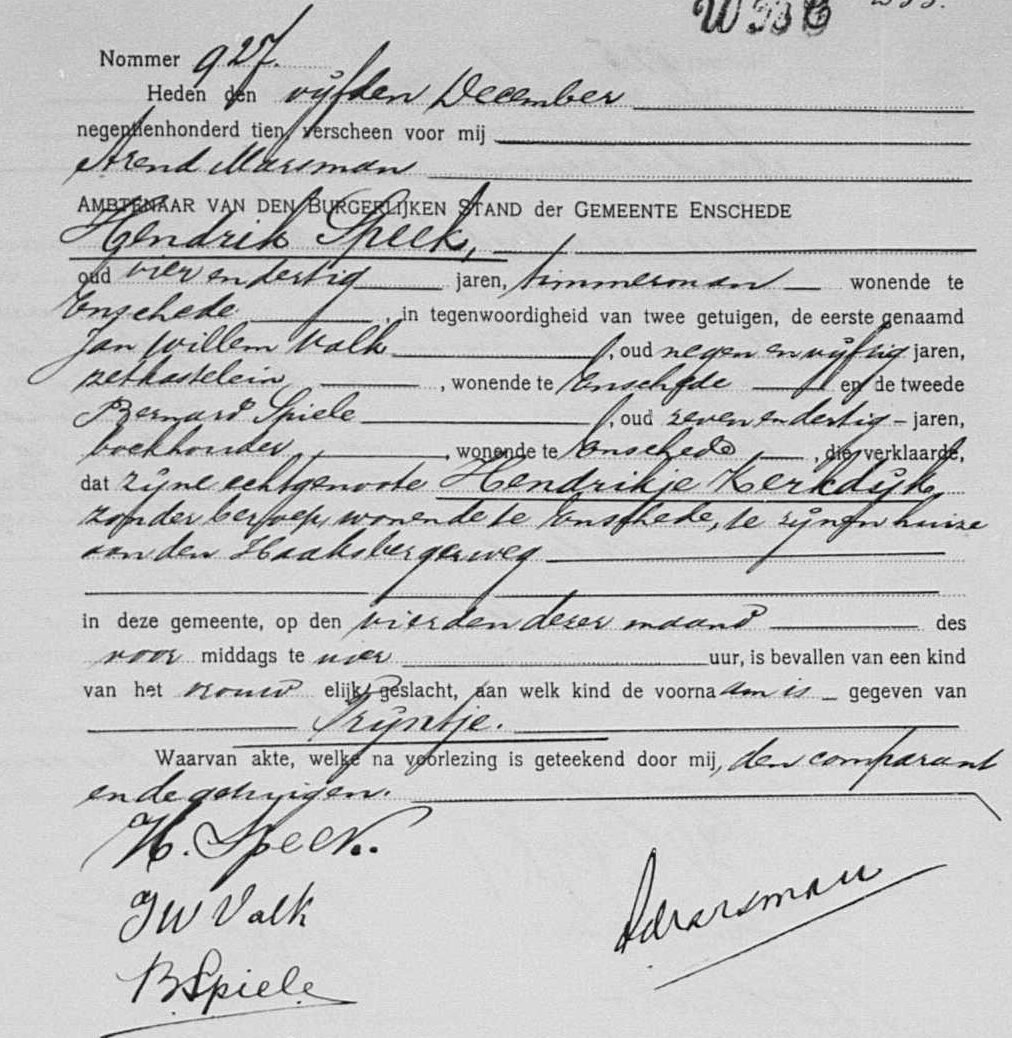 WBC
Nommer 927.
Heden den vijfden December
negentienhonderd tien, verscheen voor mij
Arend Marsman
AMBTENAAR VAN DEN BURGERLIJKEN STAND der GEMEENTE ENSCHEDE
Hendrik Speek,
oud vier en dertig jaren, timmerman wonende te
Enschede, in tegenwoordigheid van twee getuigen, de eerste genaamd
Jan Willem Valk, oud negen en vijftig jaren,
, wonende te Enschede en de tweede
Bernard Spiele, oud zeven en dertig jaren,
boekhouder, wonende te Enschede, die verklaarde,
dat zijne echtgenoote Hendrikje Kerkdijk,
zonder beroep, wonende te Enschede, te zijnen huize
aan den Haaksbergerweg
in deze gemeente, op den vierden dezer maand des
voor middags te vier uur, is bevallen van een kind
van het vrouwelijk geslacht, aan welk kind de voornaam is gegeven van
Trijntje.
Waarvan akte, welke na voorlezing is geteekend door mij, den comparant
en de getuigen.
H. Speek.
JW Valk
AMarsman
BSpiele